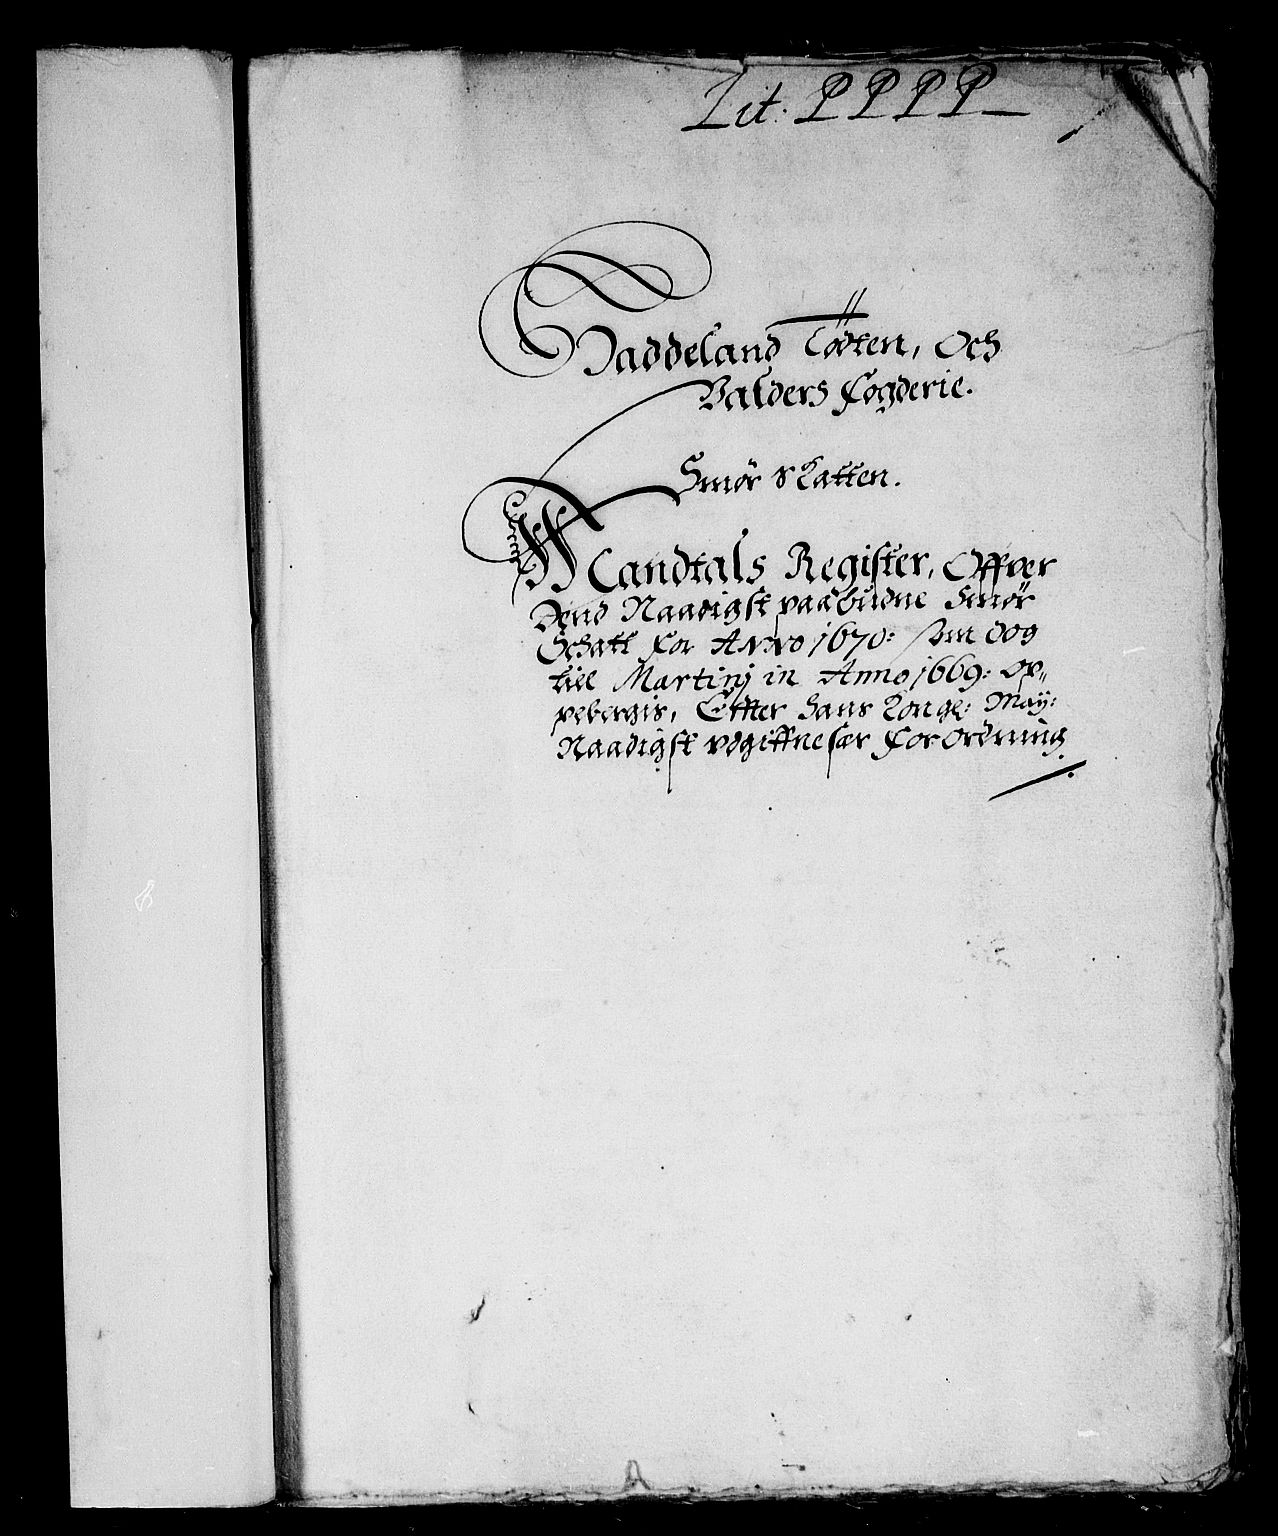 Lit: PPPP
Haddeland Todten, Och
Valders Fogderie.
Smör Skatten.
Mandtals Register, Offver
Dend Naadigst paabudne Smör
Schatt for Anno 1670: som dog
till Martinj in Anno 1669: op„
pebergis, Effter Hans Kongl: May:
Naadigst vdgiffne for ordning